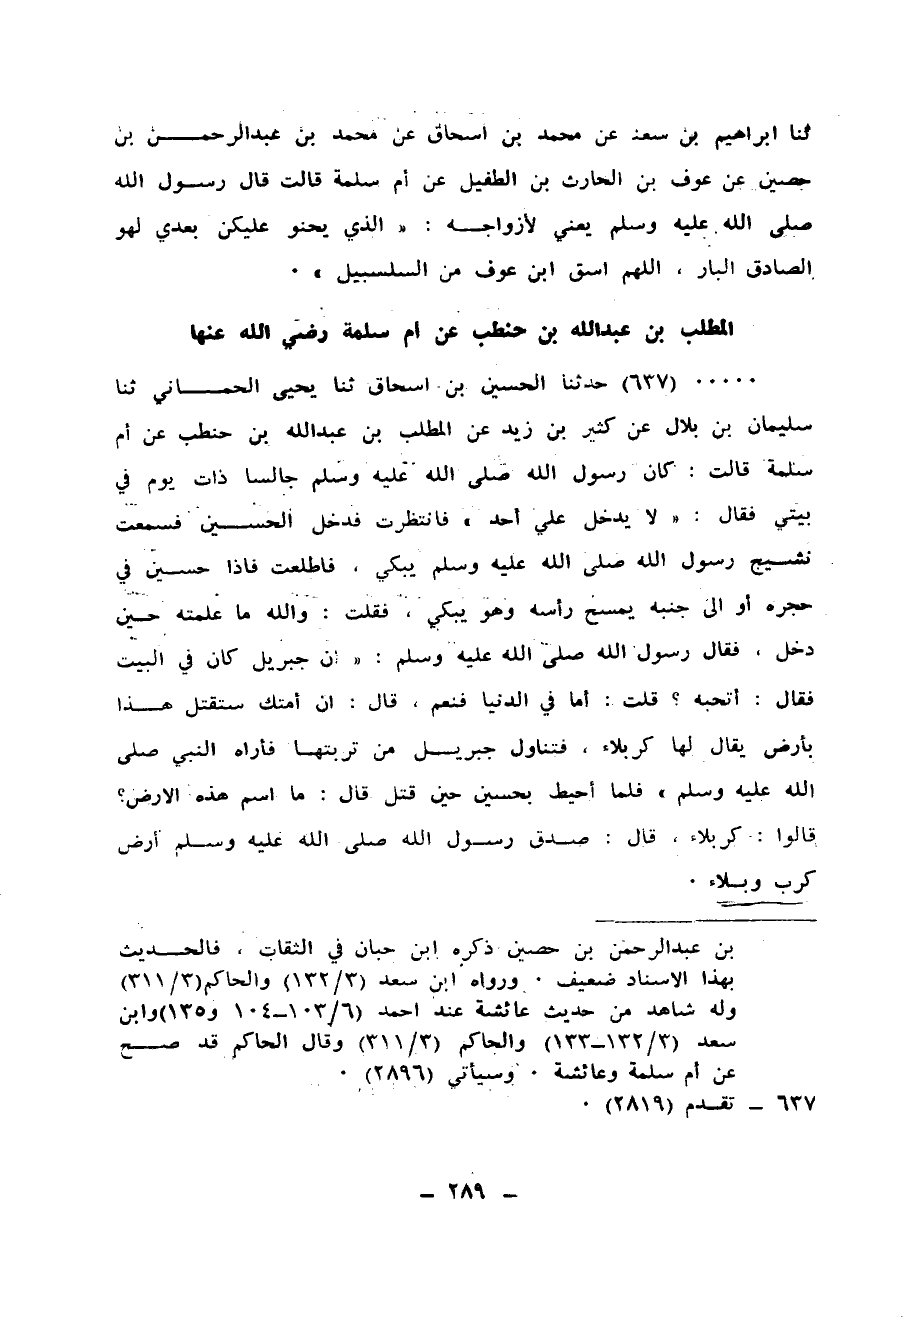 ثنا ابراهيم بن سعد عن محمد بن اسحاق عن محمد بن عبدالرحمن بن
حصين عن عوف بن الحارث بن الطفيل عن أم سلمة قالت قال رسول الله
صلى الله عليه وسلم يعني لأزواجه : « الذي يحنو عليكن بعدي لهو
الصادق البار ، اللهم اسق ابن عوف من السلسبيل » ٠
المطلب بن عبدالله بن حنطب عن أم سلمة رضي الله عنها
٠٠٠٠٠ (٦٣٧) حدثنا الحسين بن اسحاق ثنا يحيى الحماني ثنا
سليمان بن بلال عن كثير بن زيد عن المطلب بن عبدالله بن حنطب عن أم
سلمة قالت : كان رسول الله صلى الله عليه وسلم جالسا ذات يوم في
بيتي فقال : « لا يدخل علي أحد » فانتظرت فدخل الحسين فسمعت
نشيج رسول الله صلى الله عليه وسلم يبكي ، فاطلعت فاذا حسين في
حجره أو الى جنبه يمسح رأسه وهو يبكي ، فقلت : والله ما علمته حين
دخل ، فقال رسول الله صلى الله عليه وسلم : « إن جبريل كان في البيت
فقال : أتحبه ؟ قلت : أما في الدنيا فنعم ، قال : ان أمتك ستقتل هذا
بأرض يقال لها كربلاء ، فتناول جبريل من تربتها فأراه النبي صلى
الله عليه وسلم » فلما أحيط بحسين حين قتل قال : ما اسم هذه الارض؟
قالوا : كربلاء ، قال : صدق رسول الله صلى الله عليه وسلم أرض
كرب وبلاء ٠
بن عبدالرحمن بن حصين ذكره ابن حبان في الثقات ، فالحديث
بهذا الاسناد ضعيف ٠ ورواه ابن سعد (١٣٢/٣) والحاكم(٣١١/٣)
وله شاهد من حديث عائشة عند احمد (١٠٣/٦–١٠٤ و١٣٥)وابن
سعد (١٣٢/٣–١٣٣) والحاكم (٣١١/٣) وقال الحاكم قد صح
عن أم سلمة وعائشة ٠ وسيأتي (٢٨٩٦) ٠
٦٣٧ – تقدم (٢٨١٩) ٠
– ٢٨٩ –